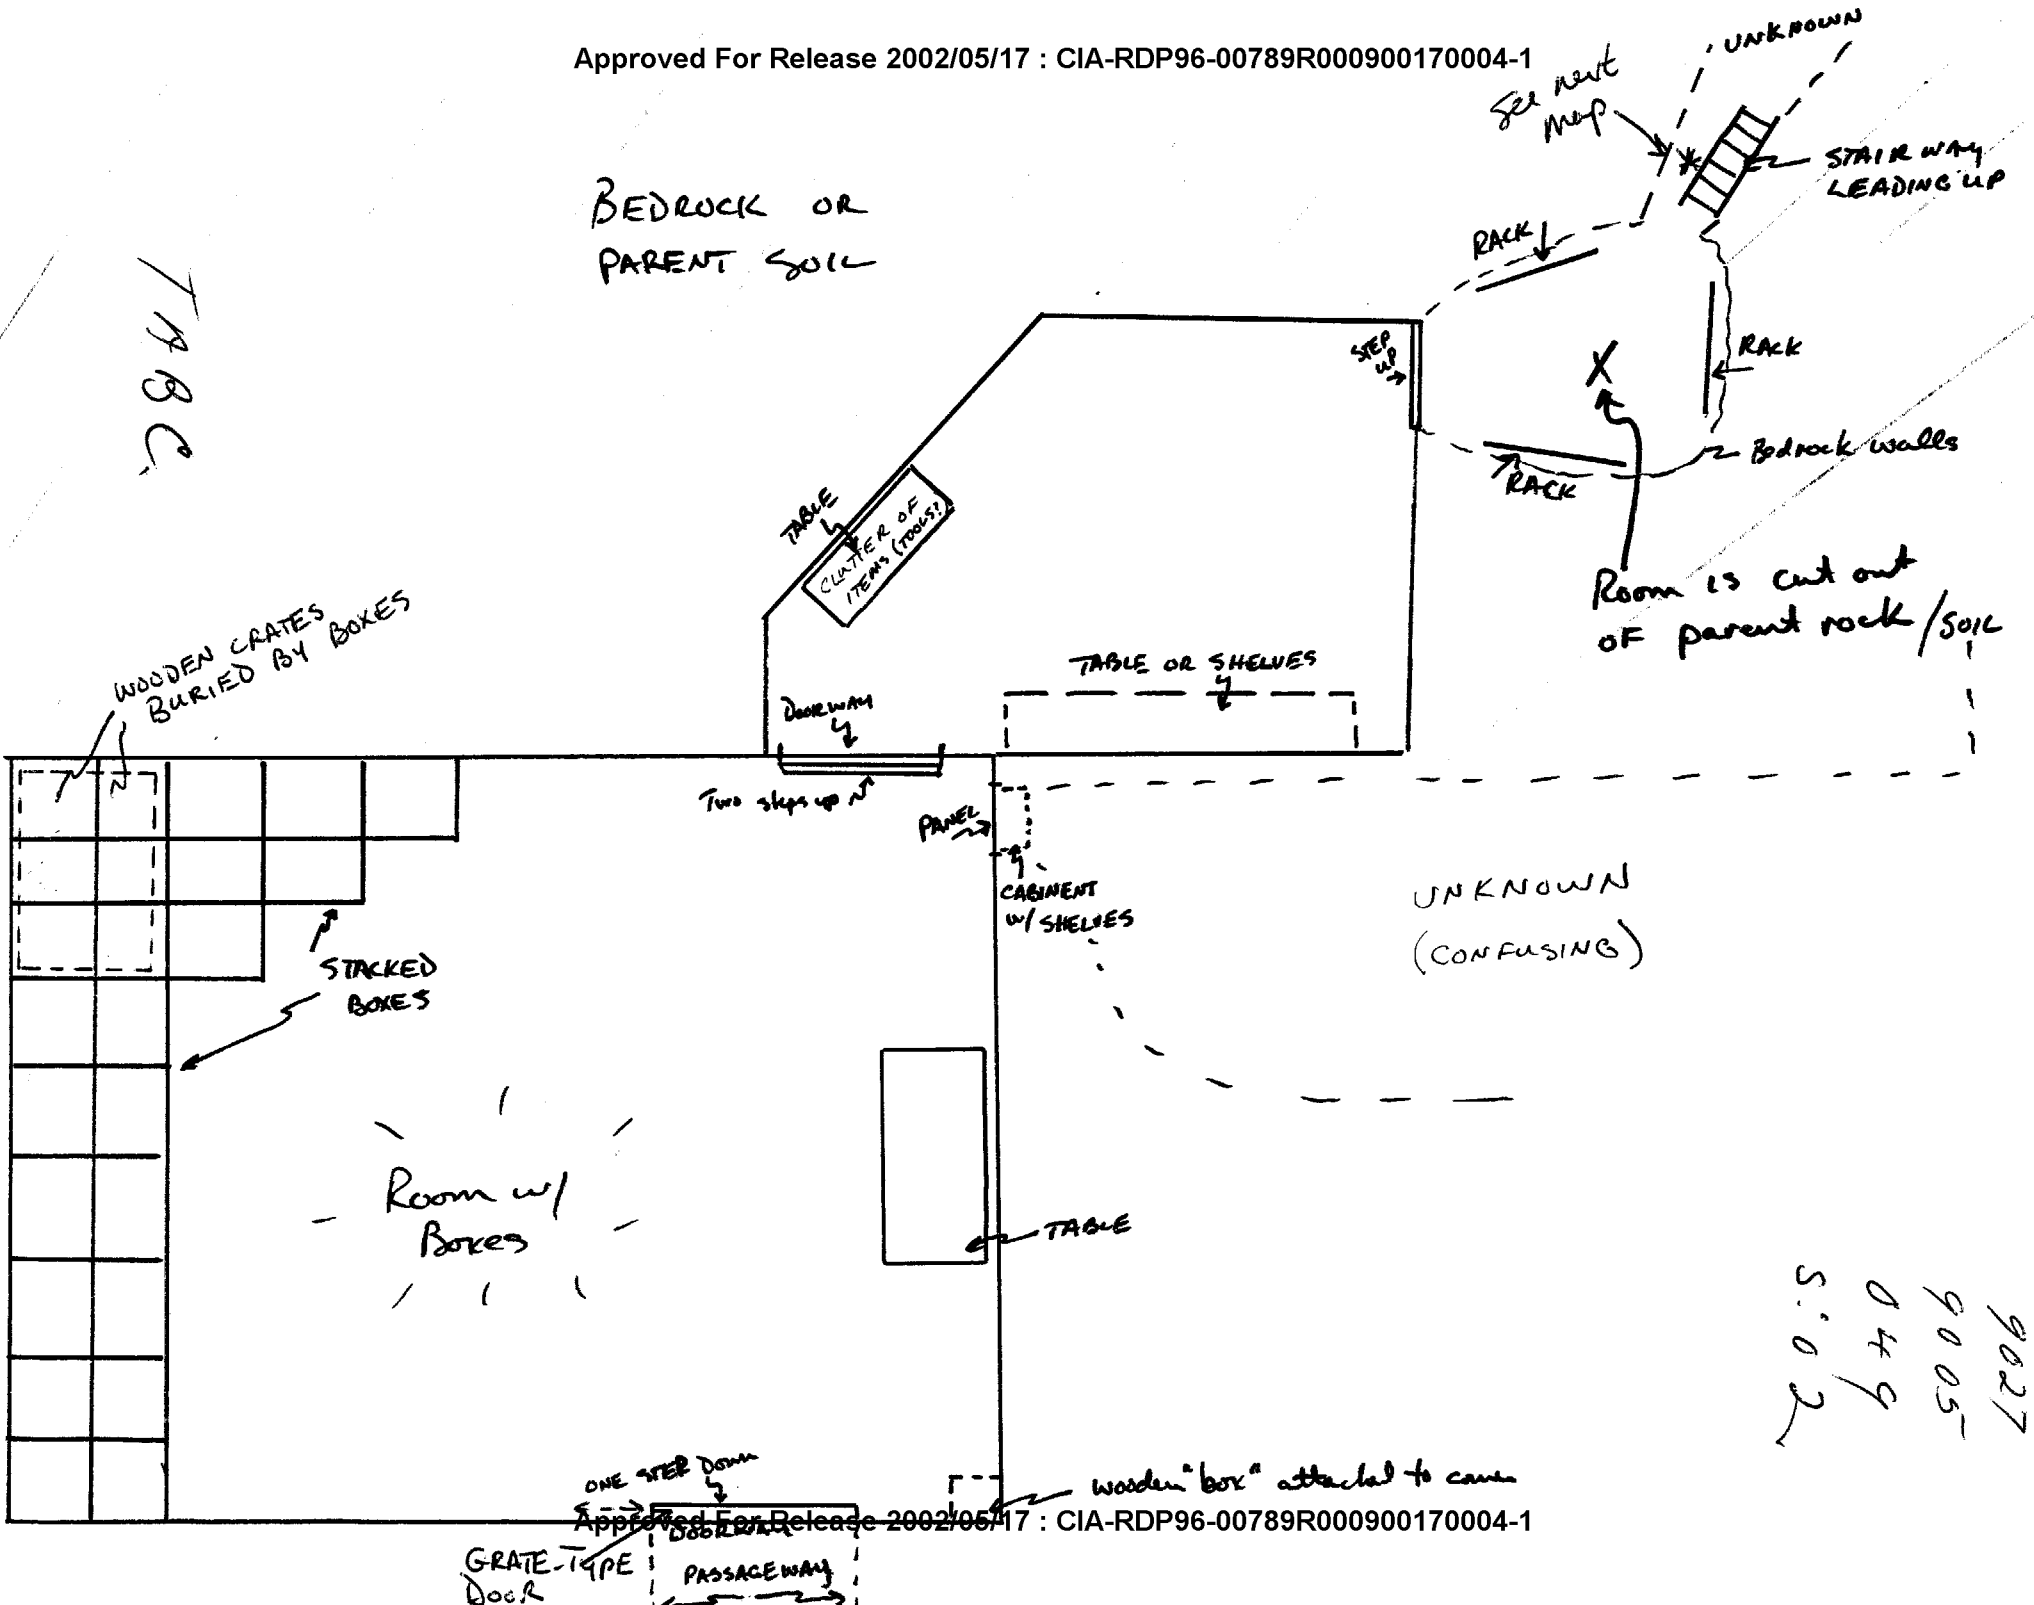 Approved For Release 2002/05/17 : CIA-RDP96-00789R000900170004-1
UNKNOWN
See next
map
STAIRWAY
LEADING UP
BEDROCK OR
PARENT SOIL
RACK
TABC
STEP
UP
RACK
X
Bedrock walls
RACK
TABLE
CLUTTER OF
ITEMS (TOOLS?)
Room is cut out
OF parent rock/SOIL
WOODEN CRATES
BURIED BY BOXES
TABLE OR SHELVES
DOORWAY
Two steps up
PANEL
CABINENT
W/ SHELVES
UNKNOWN
(CONFUSING)
STACKED
BOXES
Room w/
Boxes
TABLE
9027
9005
049
S:02
ONE STEP DOWN
wooden "box" attached to corner
Approved For Release 2002/05/17 : CIA-RDP96-00789R000900170004-1
DOORWAY
GRATE-TYPE
DOOR
PASSAGEWAY